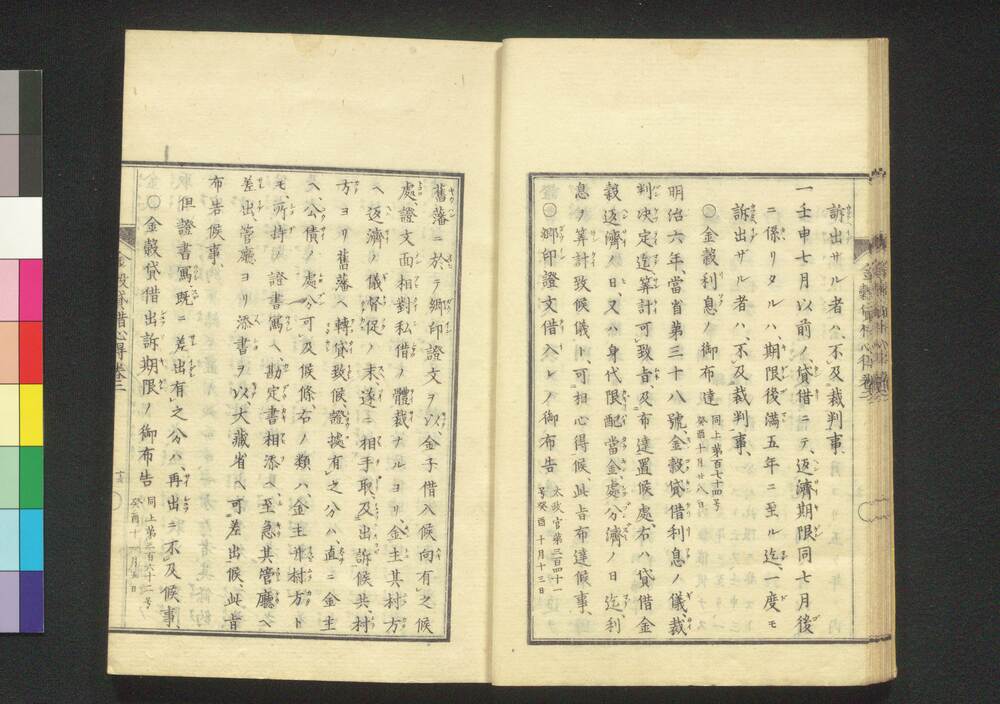 訴出ザル者ハ、不及裁判事、
一壬申七月以前ノ貸借ニテ、返濟期限同七月後
ニ係リタルハ、期限後滿五年ニ至ル迄、一度モ
訴出ザル者ハ、不及裁判事、
〇金穀利息ノ御布達 同上第百七十四号 癸酉十月廿八日
明治六年、當省第三十八號、金穀貸借利息ノ儀、裁
判决定迄、算計可致旨、及布達置候處、右ハ貸借金
穀返濟ノ日、又ハ身代限配當金、處分濟ノ日迄、利
息ノ算計致候儀ト可相心得候、此旨布達候事、
〇郷印證文借入レノ御布告 太政官第三百四十一号 癸酉十月十三日
舊藩ニ於テ郷印證文ヲ以、金子借入候向有之候
處、證文面相對私借ノ體裁ナルヨリ、金主其村方
ヘ返濟ノ儀督促ノ末、遂ニ相手取、及出訴候共、村
方ヨリ舊藩ヘ轉貸致候證據有之分ハ、直ニ金主
ヘ公債ノ處分可及候條、右ノ類ハ、金主幷村方ト
モ、所持ノ證書寫ヘ、勘定書相添ヘ、至急其管廳ヘ
差出、管廳ヨリ添書ヲ以、大藏省ヘ可差出候、此旨
布告候事、
但證書寫、既ニ差出有之分ハ、再出ニ不及候事、
〇金穀貸借出訴期限ノ御布告 同上第三百六十二号 癸酉十一月五日